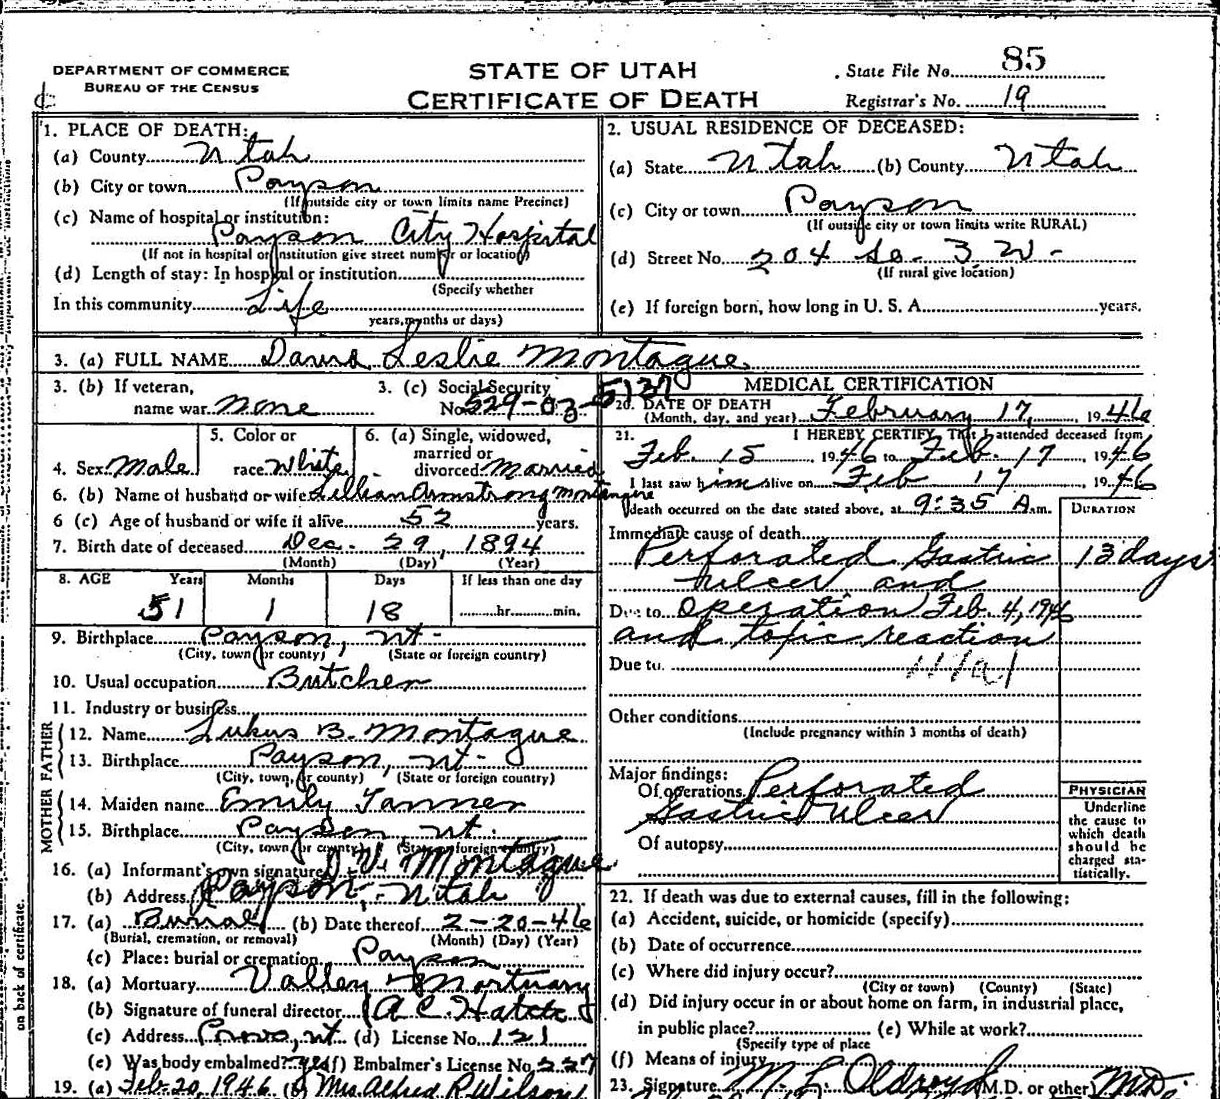 DEPARTMENT OF COMMERCE
BUREAU OF THE CENSUS
STATE OF UTAH
CERTIFICATE OF DEATH
State File No. 85
Registrar's No. 19
1. PLACE OF DEATH:
(a) County Utah
(b) City or town Payson
(If outside city or town limits name Precinct)
(c) Name of hospital or institution:
Payson City Hospital
(If not in hospital or institution give street number or location)
(d) Length of stay: In hospital or institution
(Specify whether
In this community Life
years, months or days)
2. USUAL RESIDENCE OF DECEASED:
(a) State Utah (b) County Utah
(c) City or town Payson
(If outside city or town limits write RURAL)
(d) Street No. 204 So. 3 W.
(If rural give location)
(e) If foreign born, how long in U. S. A. years.
3. (a) FULL NAME David Leslie Montague
3. (b) If veteran,
name war None
3. (c) Social Security
No. 529-03-5137
4. Sex Male
5. Color or
race White
6. (a) Single, widowed,
married or
divorced Married
6. (b) Name of husband or wife Lillian Armstrong Montague
6 (c) Age of husband or wife if alive 52 years.
7. Birth date of deceased Dec. 29, 1894
(Month) (Day) (Year)
8. AGE Years Months Days If less than one day
51 1 18 hr. min.
9. Birthplace Payson, Ut.
(City, town or county) (State or foreign country)
10. Usual occupation Butcher
11. Industry or business
FATHER
12. Name Lukus B. Montague
13. Birthplace Payson, Ut.
(City, town, or county) (State or foreign country)
MOTHER
14. Maiden name Emily Tanner
15. Birthplace Payson, Ut.
(City, town, or county) (State or foreign country)
16. (a) Informant's own signature D. V. Montague
(b) Address Payson, Utah
17. (a) Burial (b) Date thereof 2-20-46
(Burial, cremation, or removal) (Month) (Day) (Year)
(c) Place: burial or cremation Payson
18. (a) Mortuary Valley Mortuary
(b) Signature of funeral director A C. Hatch
(c) Address Provo, Ut (d) License No. 121
(e) Was body embalmed? yes (f) Embalmer's License No. 227
19. (a) Feb. 20, 1946 (b) Mrs Alfred R Wilson
on back of certificate.
MEDICAL CERTIFICATION
20. DATE OF DEATH
(Month, day, and year) February 17, 1946
21. I HEREBY CERTIFY, That I attended deceased from
Feb. 15 1946 to Feb. 17 1946
I last saw him alive on Feb 17 1946
death occurred on the date stated above, at 9:35 A.m.
DURATION
Immediate cause of death
Perforated Gastric 13 days
Ulcer and
Due to operation Feb. 4, 1946
and toxic reaction
Due to
Other conditions
(Include pregnancy within 3 months of death)
Major findings:
Of operations Perforated
Gastric Ulcer
Of autopsy
PHYSICIAN
Underline
the cause to
which death
should be
charged sta-
tistically.
22. If death was due to external causes, fill in the following:
(a) Accident, suicide, or homicide (specify)
(b) Date of occurrence
(c) Where did injury occur?
(City or town) (County) (State)
(d) Did injury occur in or about home on farm, in industrial place,
in public place? (e) While at work?
(Specify type of place
(f) Means of injury
23. Signature M L Oldroyd (M.D. or other) M.D.